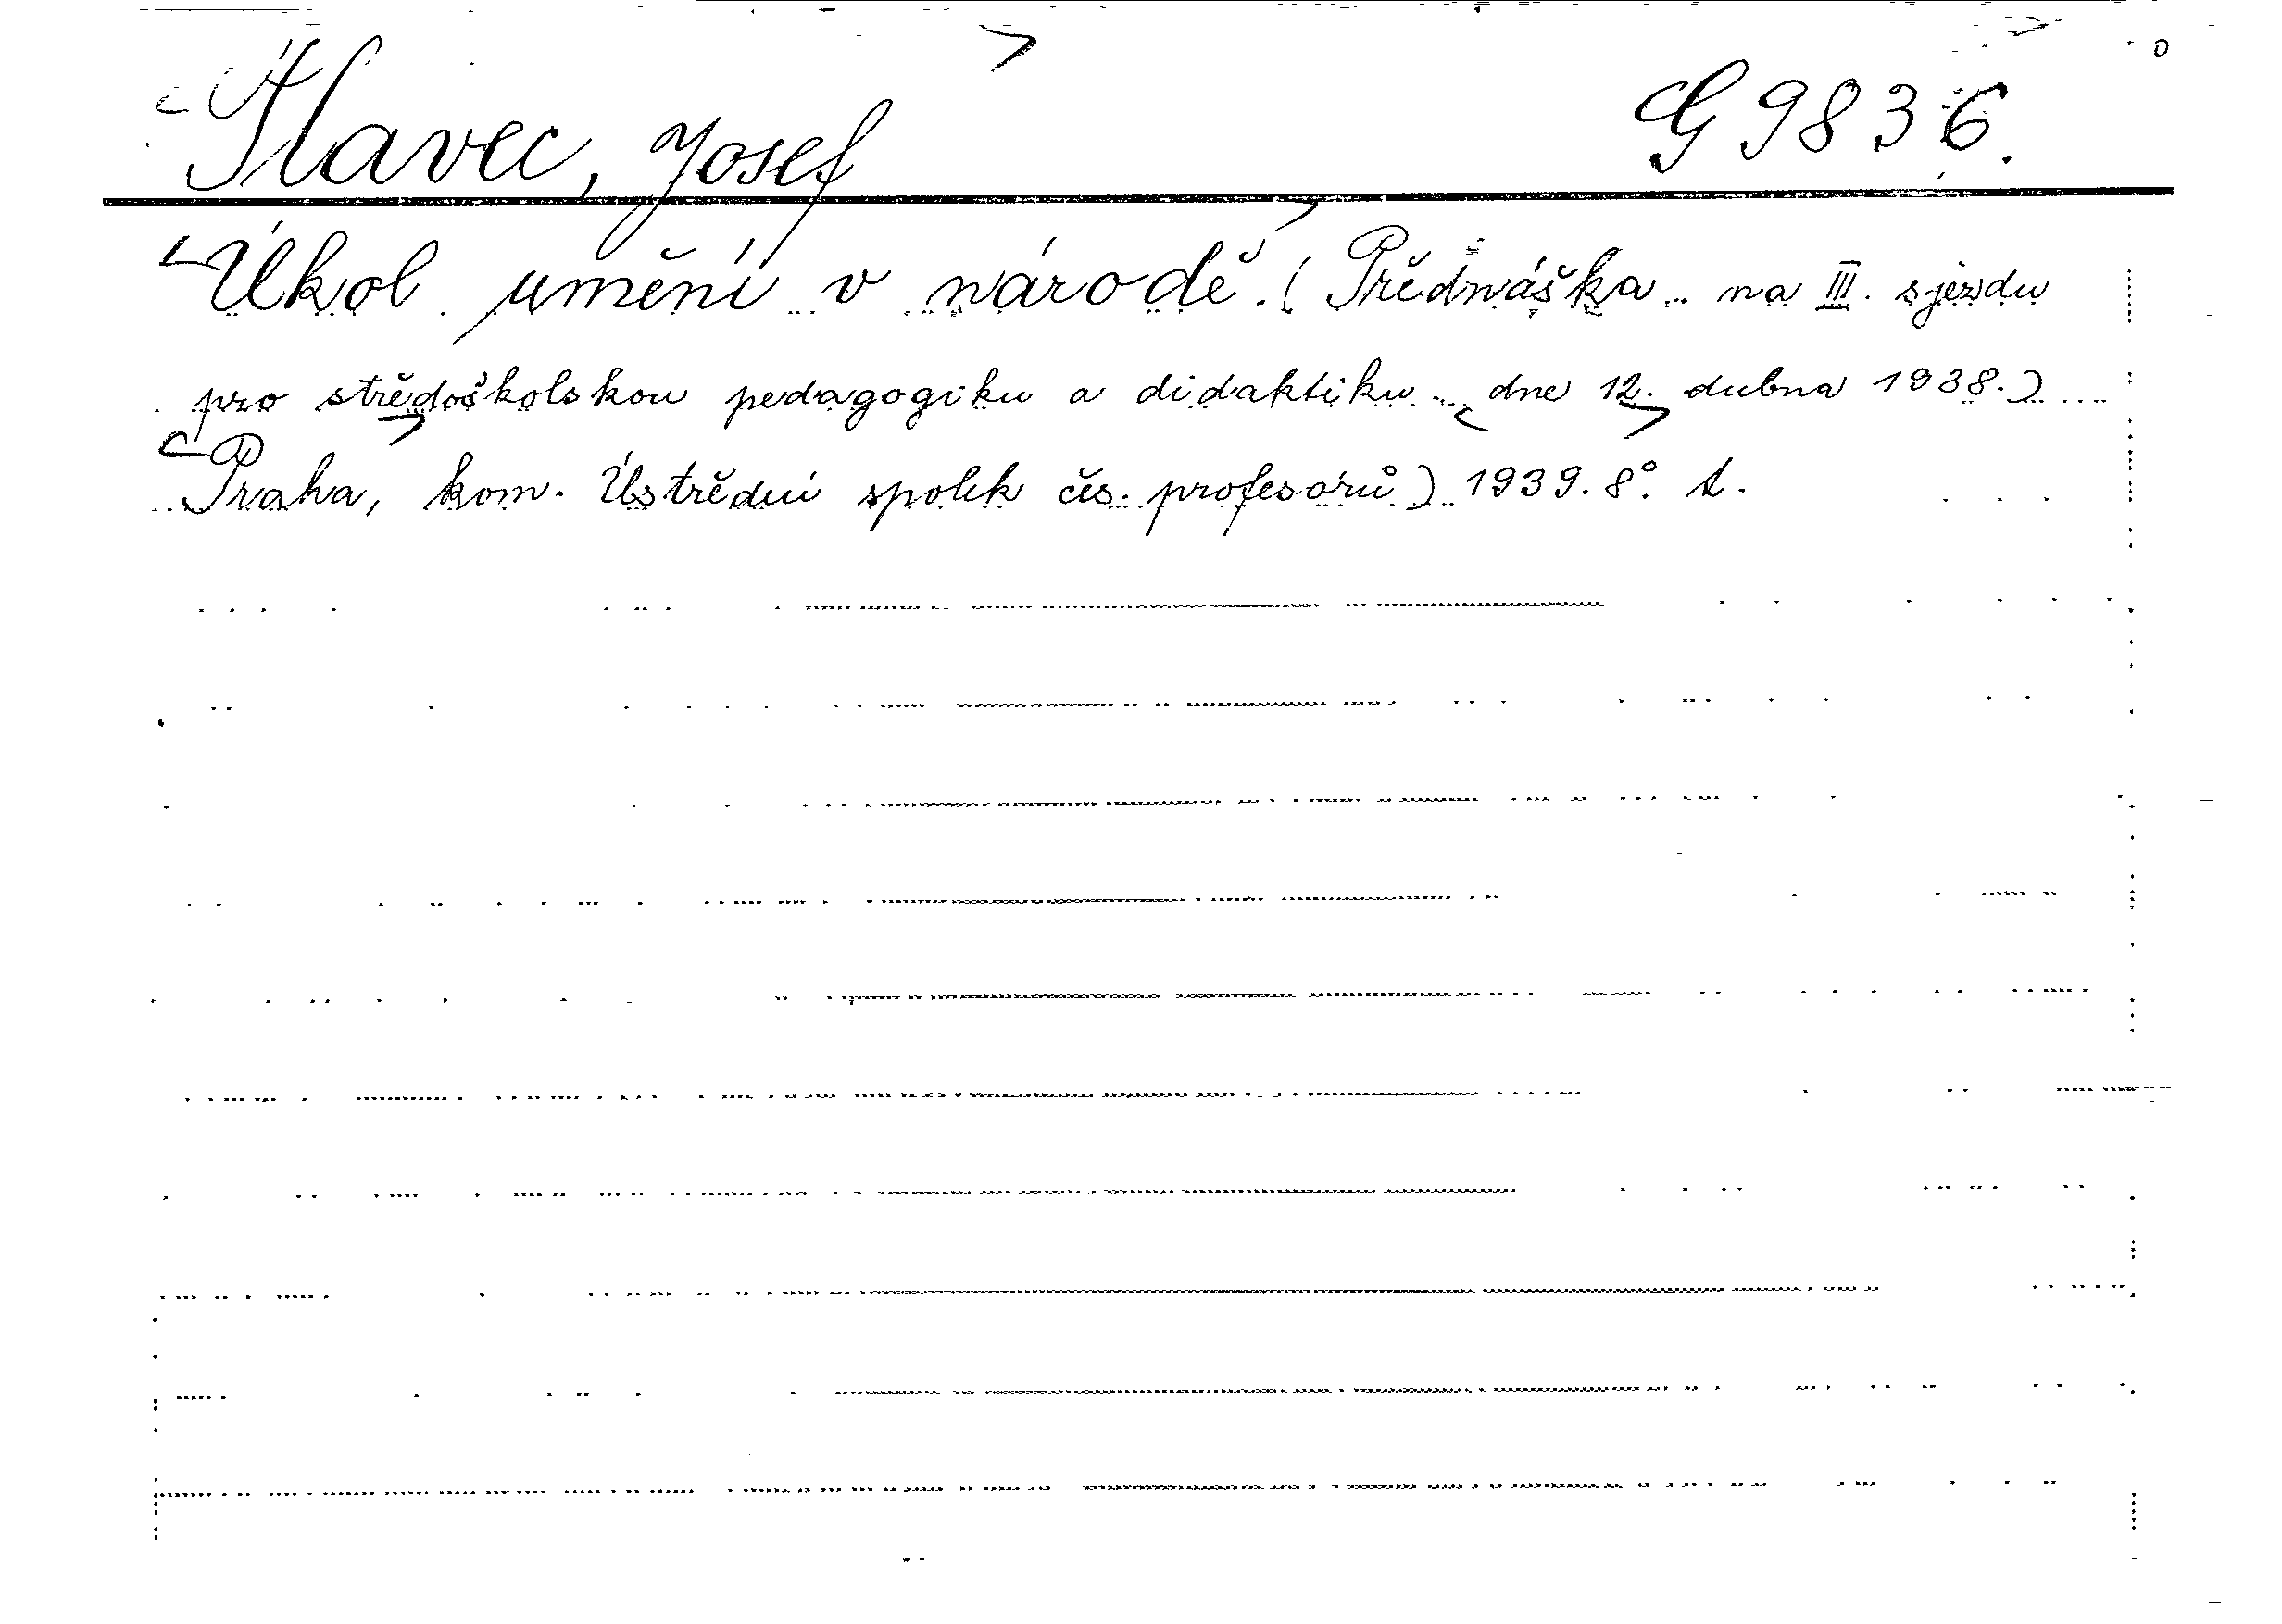 Hlavec, Josef G 9836.
Úkol umění v národě. (Přednáška na III. sjezdu
pro středoškolskou pedagogiku a didaktiku dne 12. dubna 1938.)
Praha, kom. Ústřední spolek čes. profesorů) 1939. 8°. 1.